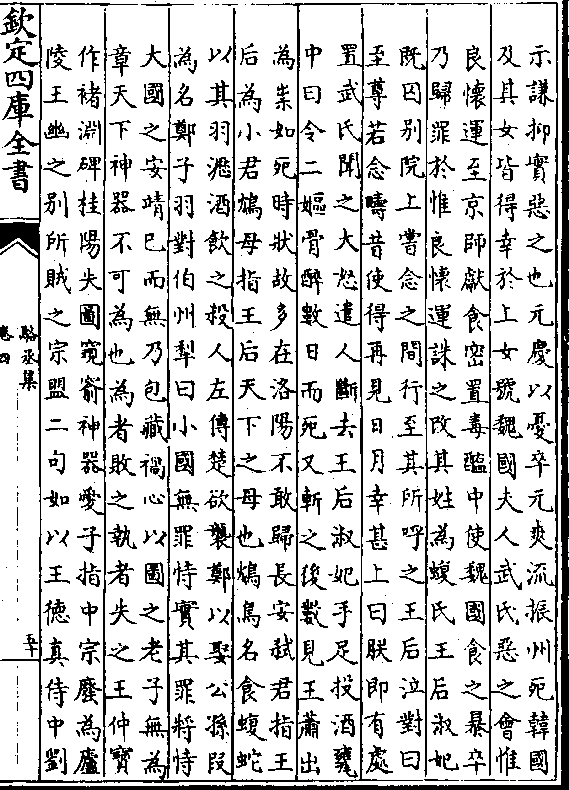 示謙抑實惡之也元慶以憂卒元爽流振州死韓國
及其女皆得幸於上女號魏國夫人武氏惡之會惟
良懷運至京師獻食密置毒醢中使魏國食之暴卒
乃歸罪於惟良懷運誅之改其姓為蝮氏王后淑妃
既囚别院上嘗念之間行至其所呼之王后泣對曰
至尊若念疇昔使得再見日月幸甚上曰朕即有處
置武氏聞之大怒遣人斷去王后淑妃手足投酒甕
中曰令二嫗骨醉數日而死又斬之後數見王蕭出
為祟如死時狀故多在洛陽不敢歸長安弑君指王
后為小君鴆母指王后天下之母也鴆鳥名食蝮蛇
以其羽瀝酒飲之殺人左傳楚欲襲鄭以娶公孫段
為名鄭子羽對伯州犁曰小國無罪恃實其罪將恃
大國之安靖已而無乃包藏禍心以圖之老子無為
章天下神器不可為也為者敗之執者失之王仲寶
作褚淵碑桂陽失圖窺窬神器愛子指中宗廢為廬
陵王幽之别所賊之宗盟二句如以王德真侍中劉
欽定四庫全書
駱丞集
卷四
五十